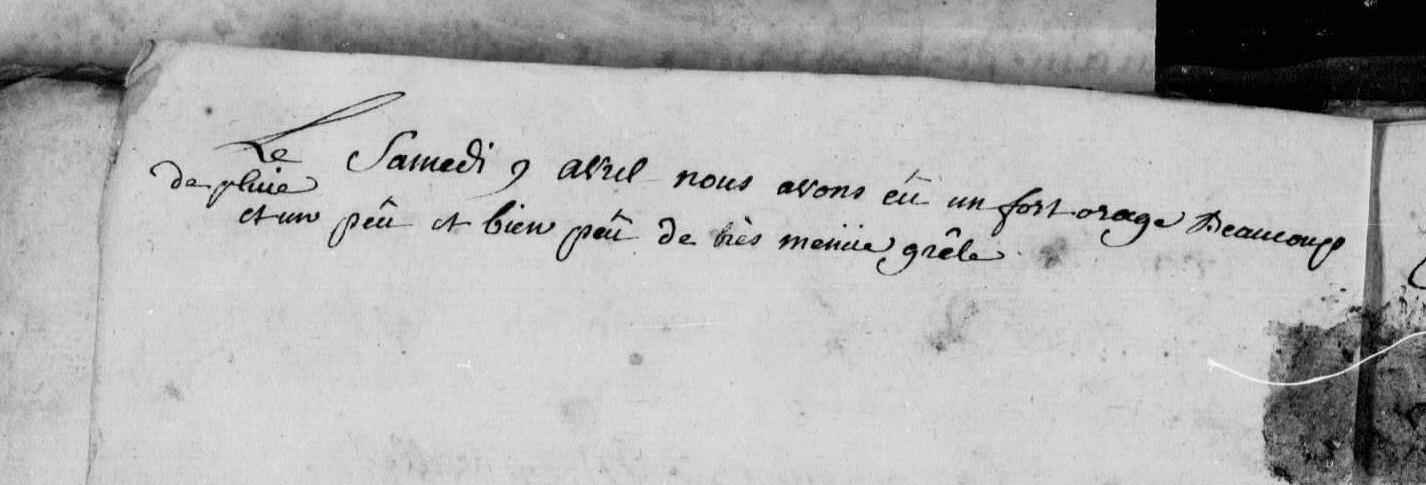 Le Samedi 9 avril nous avons eû un fort orage Beaucoup
de pluie
et un peû et bien peû de très menüe grêle